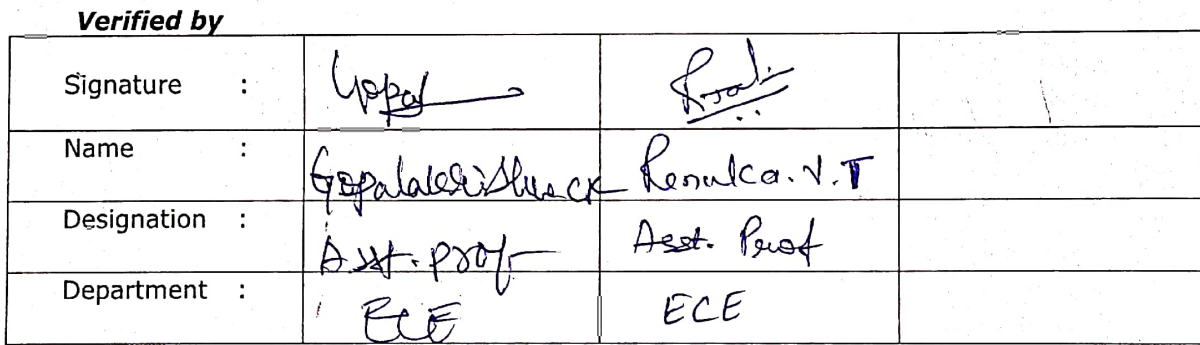 Verified by
Signature : Gopal
Name : Gopalakrishna CK Renuka. V. T
Designation : Asst. Prof Asst. Prof
Department : ECE ECE